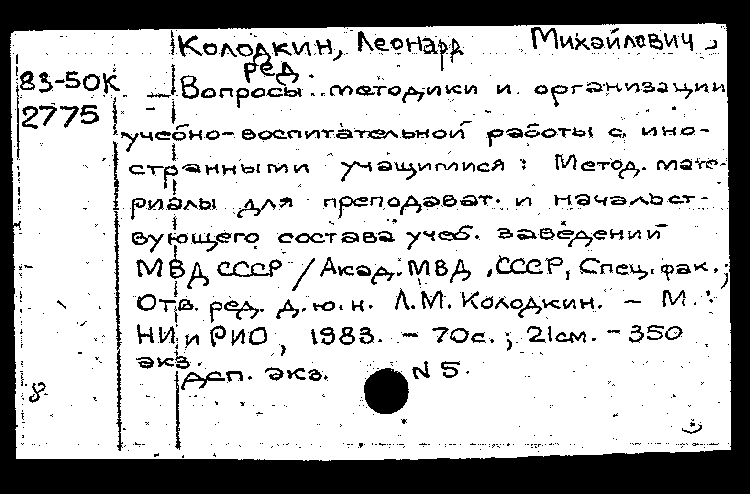 Колодкин, Леонард Михайлович,
ред.
83-50К
2775
— Вопросы методики и организации
учебно-воспитательной работы с ино-
странными учащимися: Метод. мате-
риалы для преподават. и начальст-
вующего состава учеб. заведений
МВД СССР / Акад. МВД СССР, Спец. фак.;
Отв. ред. д.ю.н. Л.М. Колодкин. – М.:
НИ и РИО, 1983. – 70с.; 21см. – 350
экз.
ДСП. экз. N 5.